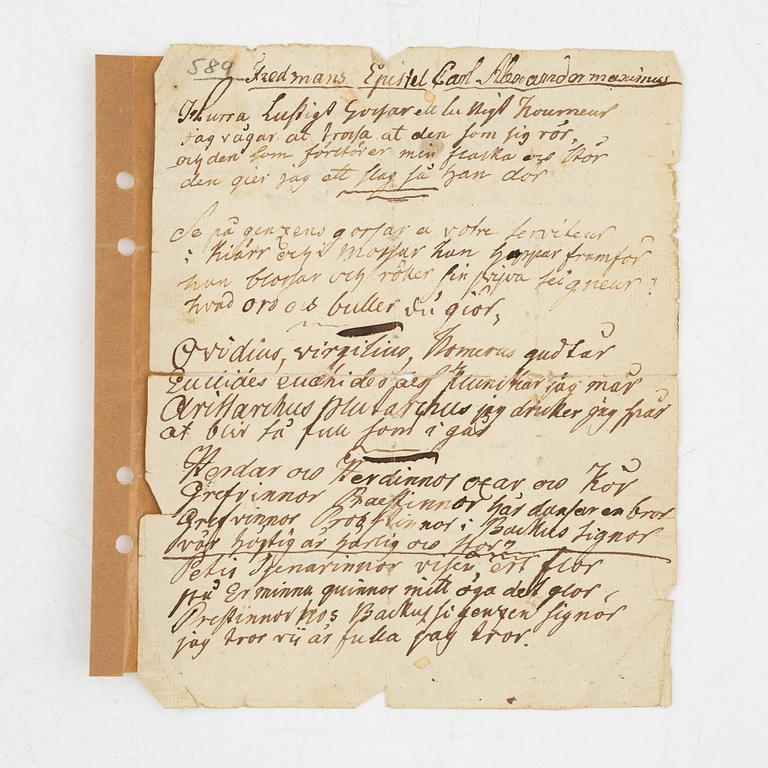 589
Fredmans Epistel Carl Alexander maximus
Hurra Lustigt Gossar ett lustigt Houmeur
Jag vågar at trotsa at den som jig rör,
och den som förstörer min flaska och Stör
den gier jag ett slag så han dör
Se på genzens gossar a votre serviteur
i Kiärr och i Mossar han hoppar framför
han blossar och röker sin pijva seigneur
hvad oro och buller du giör,
Ovidius, virgilius, Homerus gudfar
Euclides jag mår
Aristarchus plutarchus jag druker jag spår
at blir så full som i går
Herdar och Herdinnor oxar och Kör
Grefvinnor här dansar en bror
Grefvinnor i Backus Signor
vår högtig är härlig och stor
Petis Tjenarinnor viser ert flor
på Er minna quinnor mitt öga det glor,
Prestinnor hos Backus si genzen signor
jag tror vij är fulla jag tror.